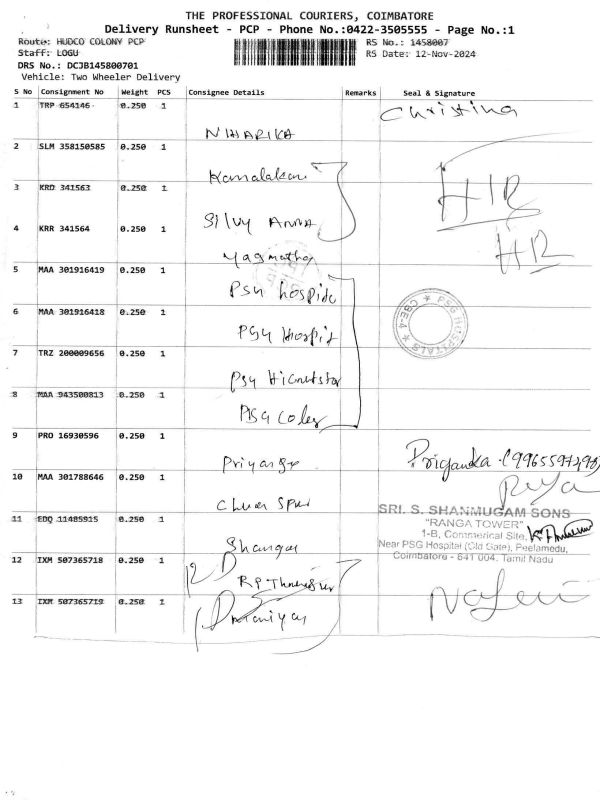 THE PROFESSIONAL COURIERS, COIMBATORE
Delivery Runsheet - PCP - Phone No.:0422-3505555 - Page No.:1
Route: HUDCO COLONY PCP
RS No.: 1458007
Staff: LOGU
RS Date: 12-Nov-2024
DRS No.: DCJB145800701
Vehicle: Two Wheeler Delivery
S No Consignment No Weight PCS Consignee Details Remarks Seal & Signature
1 TRP 654146 0.250 1 NIHARIKA Christina
2 SLM 358150585 0.250 1 Kamalakani
3 KRD 341563 0.250 1 Silvy ANNA HR
4 KRR 341564 0.250 1 HR
5 MAA 301916419 0.250 1 PSG hospital
6 MAA 301916418 0.250 1 PSG Hospit
PSG HOSPITALS ★ CBE-4 ★
7 TRZ 200009656 0.250 1 PSG
8 MAA 943500813 0.250 1 PSG
9 PRO 16930596 0.250 1 Priyanga Priyanka
10 MAA 301788646 0.250 1
11 EDQ 11485915 0.250 1
SRI. S. SHANMUGAM SONS
"RANGA TOWER"
1-B, Commerical Site,
Near PSG Hospital (Old Gate), Peelamedu,
Coimbatore - 641 004. Tamil Nadu
12 IXM 507365718 0.250 1
13 IXM 507365719 0.250 1